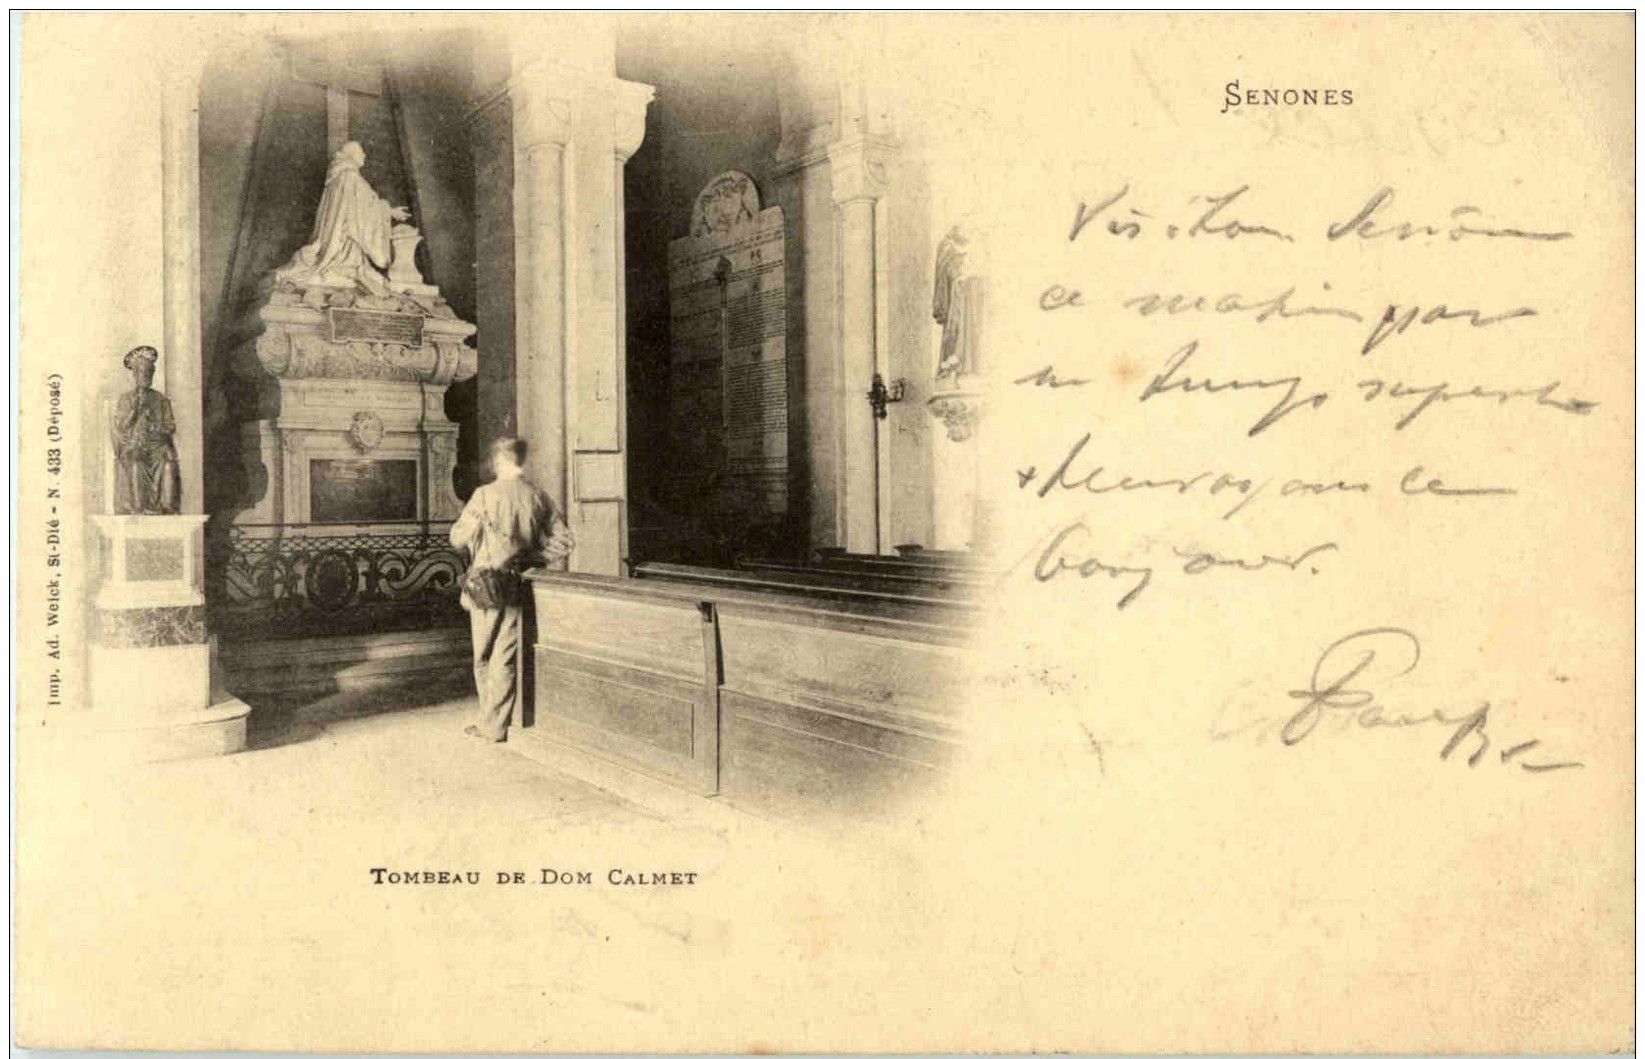 SENONES
Visitons Senones
ce matin par
un temps superbe
+ envoyons ce
bonjour.
Imp. Ad. Weick, St-Dié - N. 433 (Déposé)
TOMBEAU DE DOM CALMET